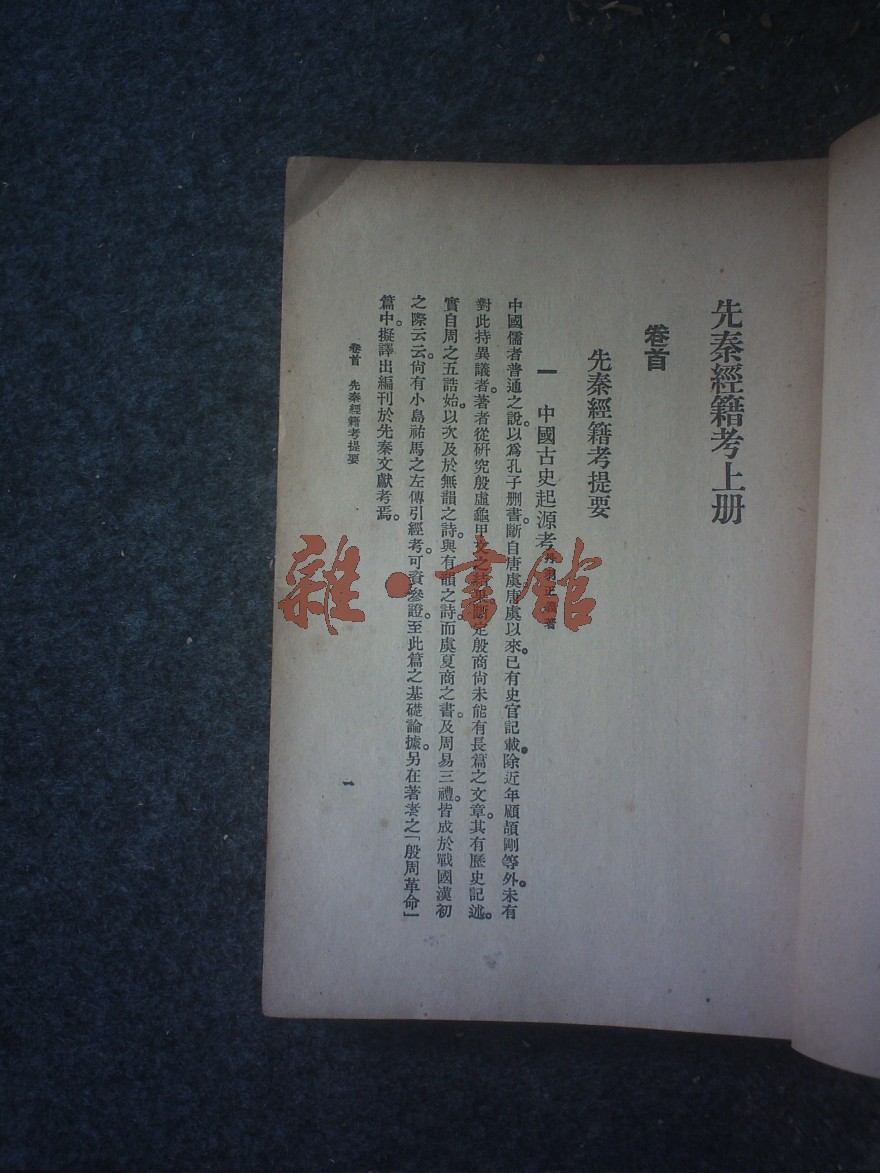 先秦經籍考上册
卷首
先秦經籍考提要
一 中國古史起源考 丹羽正義著
中國儒者普通之說。以爲孔子删書。斷自唐虞。唐虞以來。已有史官記載。除近年顧頡剛等外。未有
對此持異議者。著者從研究殷虛龜甲文之結果。斷定殷商尙未能有長篇之文章。其有歷史記述。
實自周之五誥始。以次及於無韻之詩。與有韻之詩。而虞夏商之書。及周易三禮。皆成於戰國漢初
之際云云。尙有小島祐馬之左傳引經考。可資參證。至此篇之基礎論據。另在著者之「殷周革命」
篇中。擬譯出編刊於先秦文獻考焉。
卷首 先秦經籍考提要
一
雜·書館